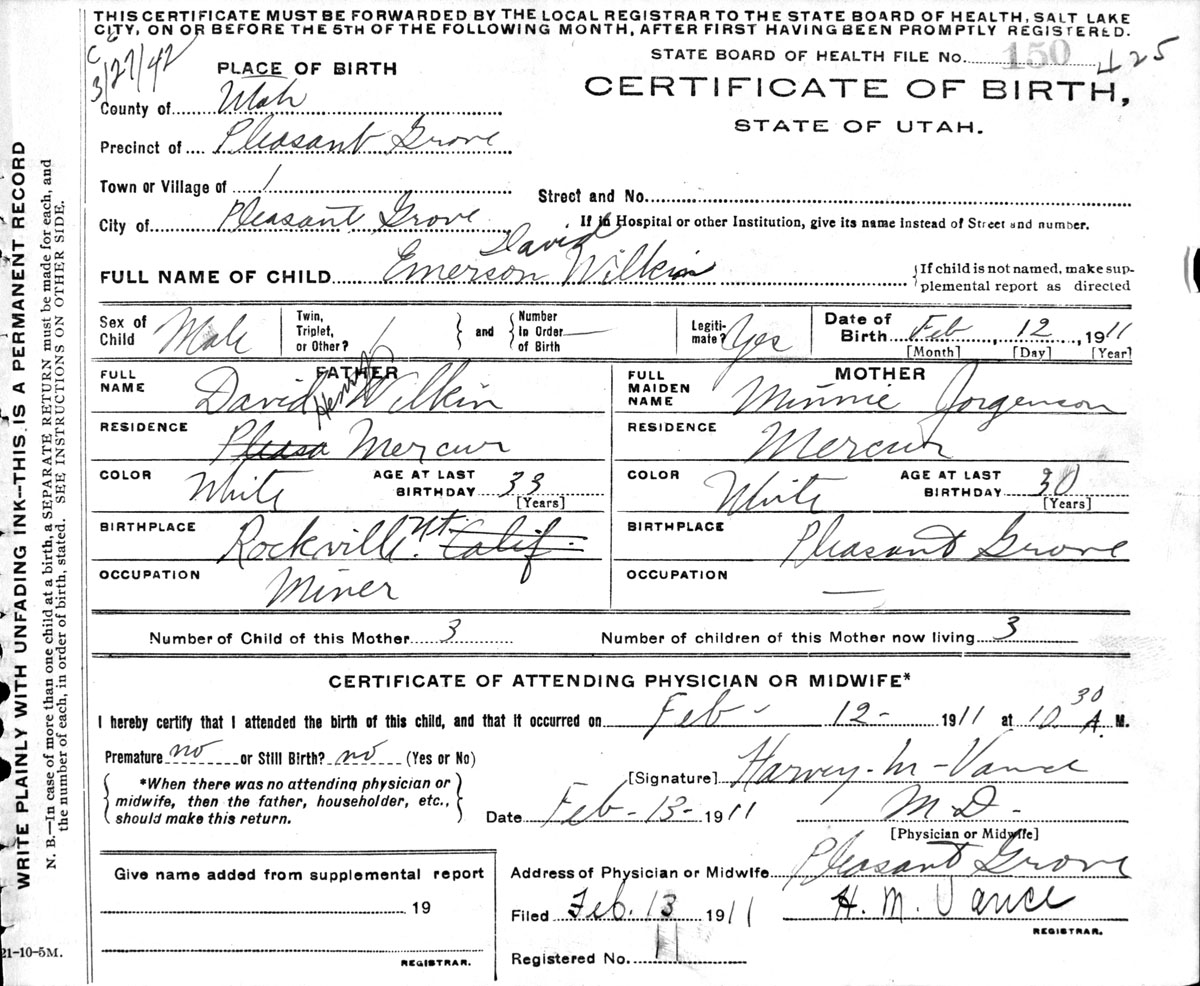 THIS CERTIFICATE MUST BE FORWARDED BY THE LOCAL REGISTRAR TO THE STATE BOARD OF HEALTH, SALT LAKE
CITY, ON OR BEFORE THE 5TH OF THE FOLLOWING MONTH, AFTER FIRST HAVING BEEN PROMPTLY REGISTERED.
3/27/42
STATE BOARD OF HEALTH FILE No. 150 425
PLACE OF BIRTH
CERTIFICATE OF BIRTH,
STATE OF UTAH.
County of Utah
Precinct of Pleasant Grove
Town or Village of
Street and No.
City of Pleasant Grove
If in Hospital or other Institution, give its name instead of Street and number.
David
FULL NAME OF CHILD Emerson Wilkin
If child is not named, make sup-
plemental report as directed
Sex of Child Male
Twin, Triplet, or Other?
and
Number in Order of Birth —
Legiti-mate? Yes
Date of Birth Feb, 12, 1911
[Month] [Day] [Year]
FATHER
FULL NAME David Henry Wilkin
RESIDENCE Pleasa Mercur
COLOR White
AGE AT LAST BIRTHDAY 33
[Years]
BIRTHPLACE Rockvill. Ut. Calif.
OCCUPATION Miner
MOTHER
FULL MAIDEN NAME Minnie Jorgenson
RESIDENCE Mercur
COLOR White
AGE AT LAST BIRTHDAY 30
[Years]
BIRTHPLACE Pleasant Grove
OCCUPATION —
Number of Child of this Mother 3
Number of children of this Mother now living 3
CERTIFICATE OF ATTENDING PHYSICIAN OR MIDWIFE*
I hereby certify that I attended the birth of this child, and that it occurred on Feb- 12- 1911 at 10 30 A. M.
Premature no or Still Birth? no (Yes or No)
*When there was no attending physician or
midwife, then the father, householder, etc.,
should make this return.
[Signature] Harvey-M-Vance
Date Feb-13-1911
M D-
[Physician or Midwife]
Give name added from supplemental report
19
REGISTRAR.
Address of Physician or Midwife Pleasant Grove
Filed Feb. 13 1911
H. M. Vance
REGISTRAR.
Registered No. 11
WRITE PLAINLY WITH UNFADING INK--THIS IS A PERMANENT RECORD
N. B.—In case of more than one child at a birth, a SEPARATE RETURN must be made for each, and
the number of each, in order of birth, stated. SEE INSTRUCTIONS ON OTHER SIDE.
21-10-5M.